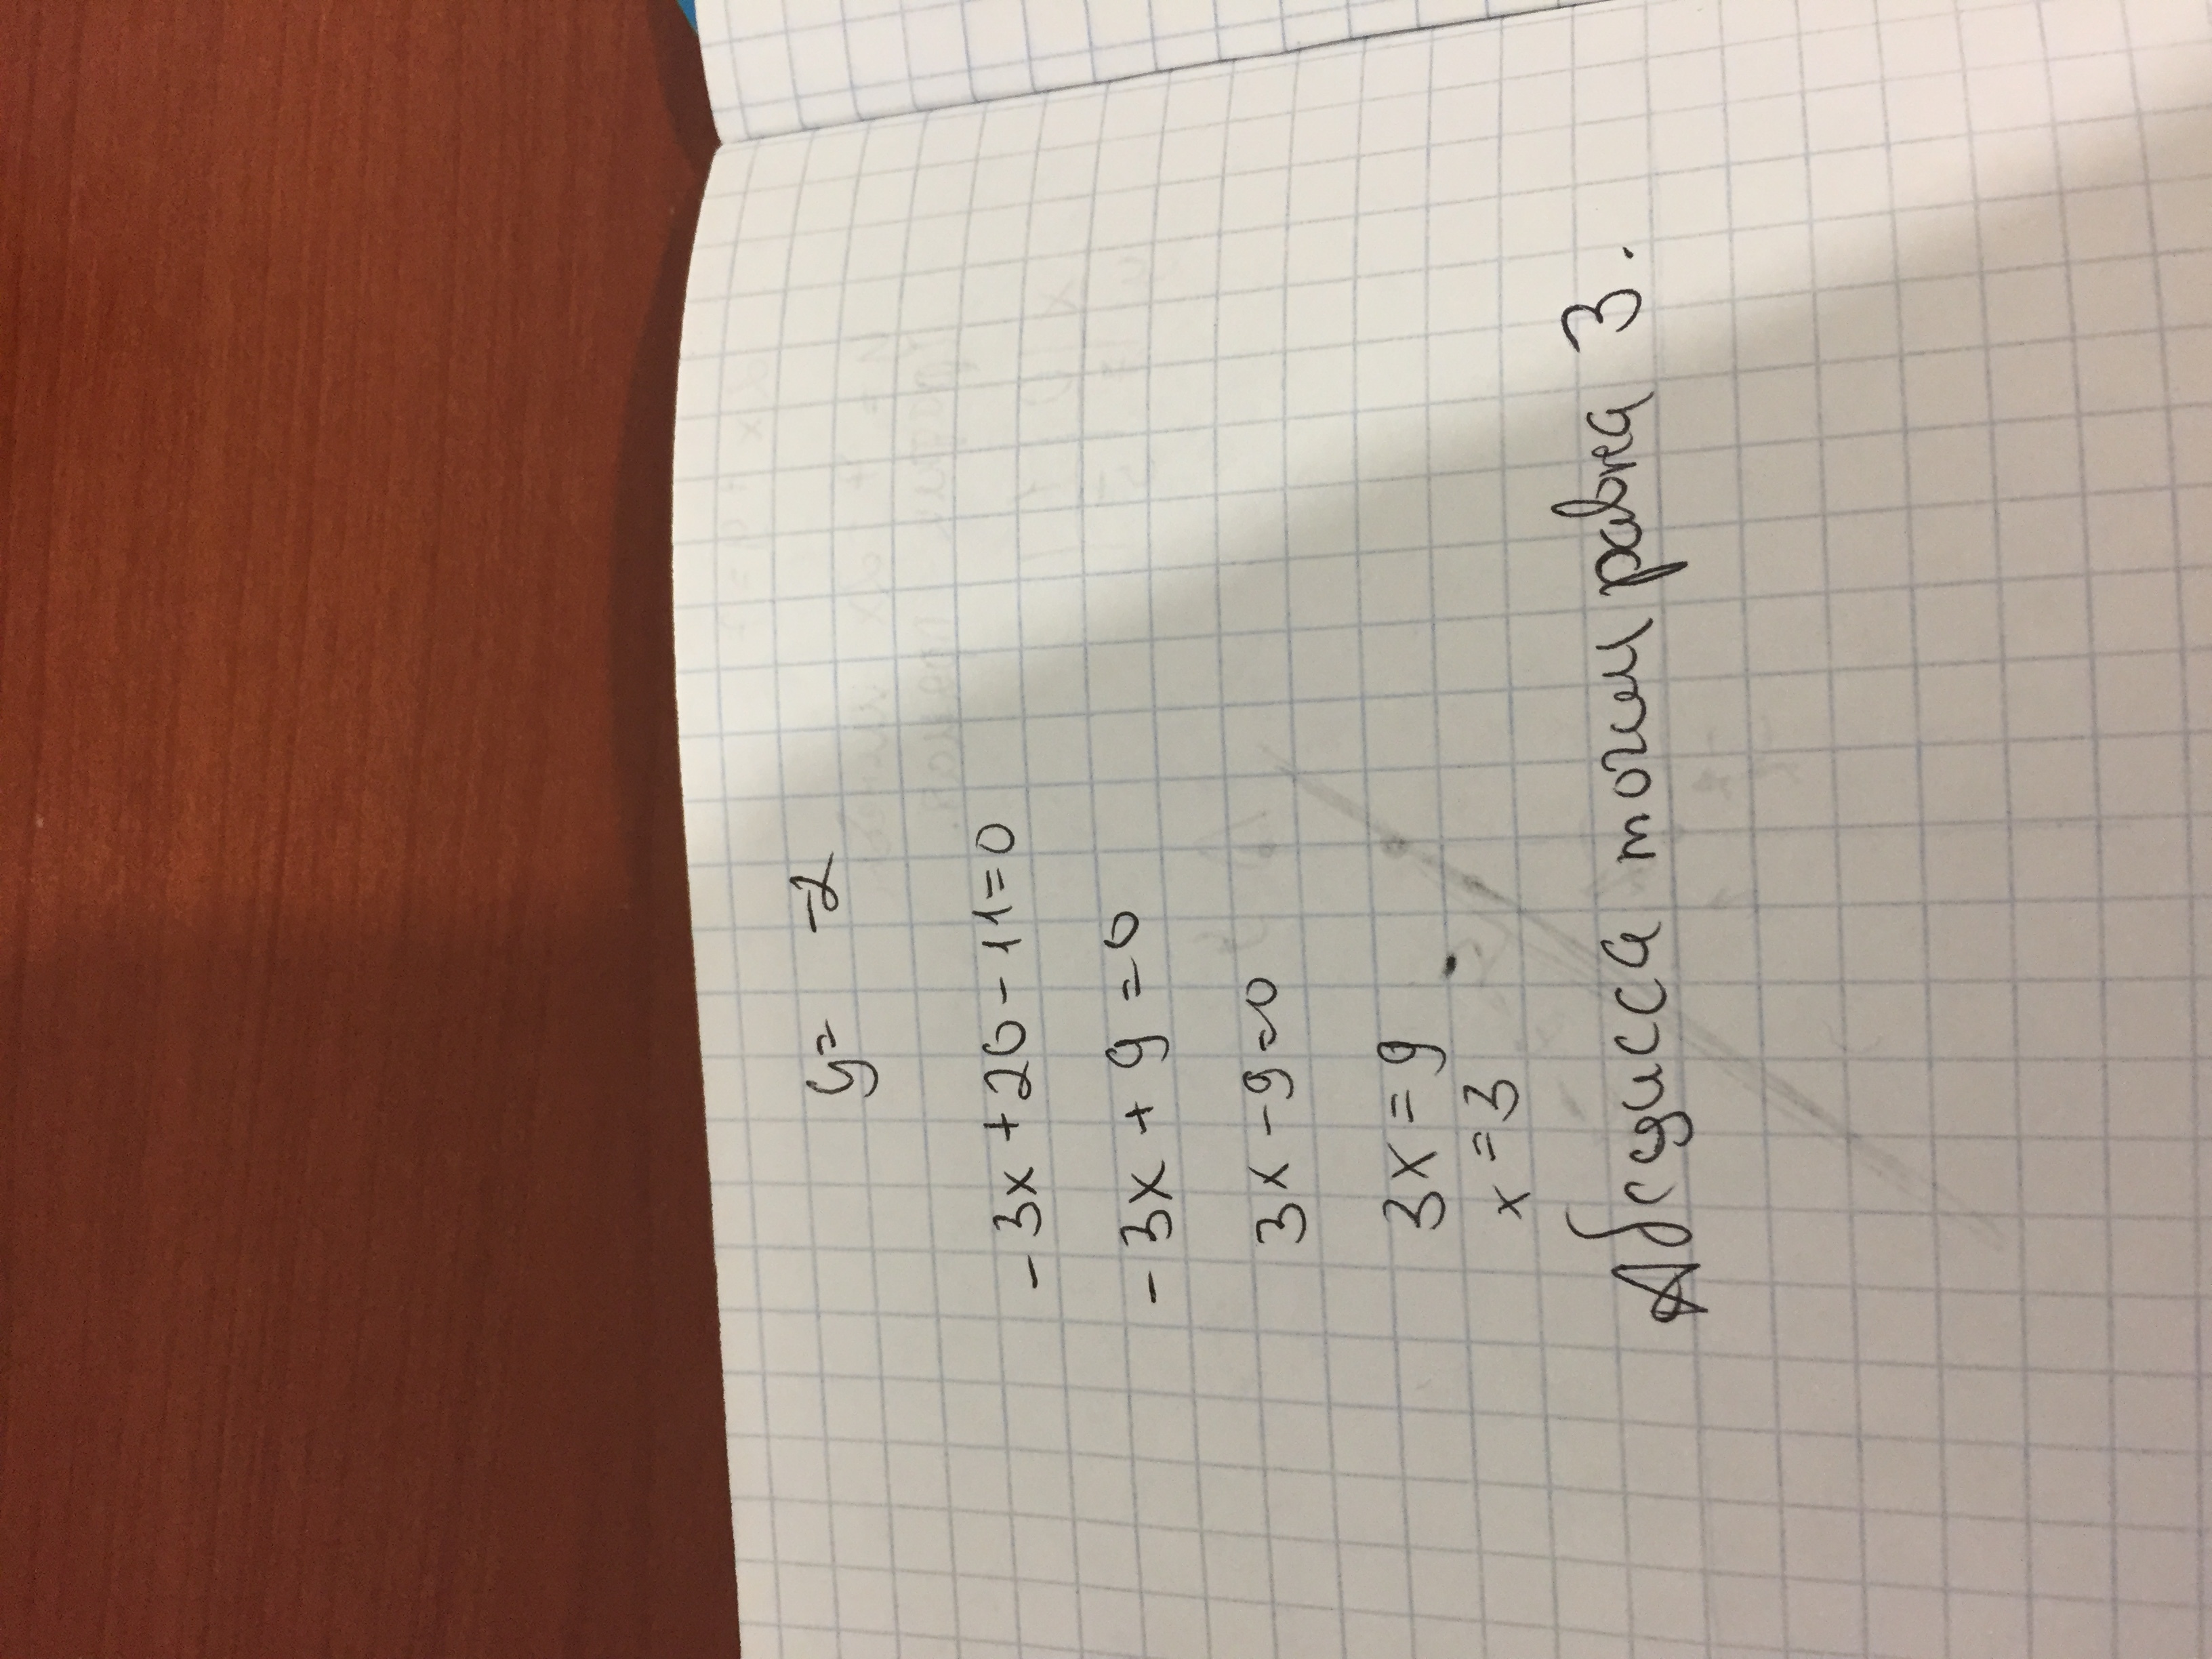 y= -2
-3x+20-11=0
-3x+9=0
3x-9=0
3x=9
x=3
Абсцисса точки равна 3.